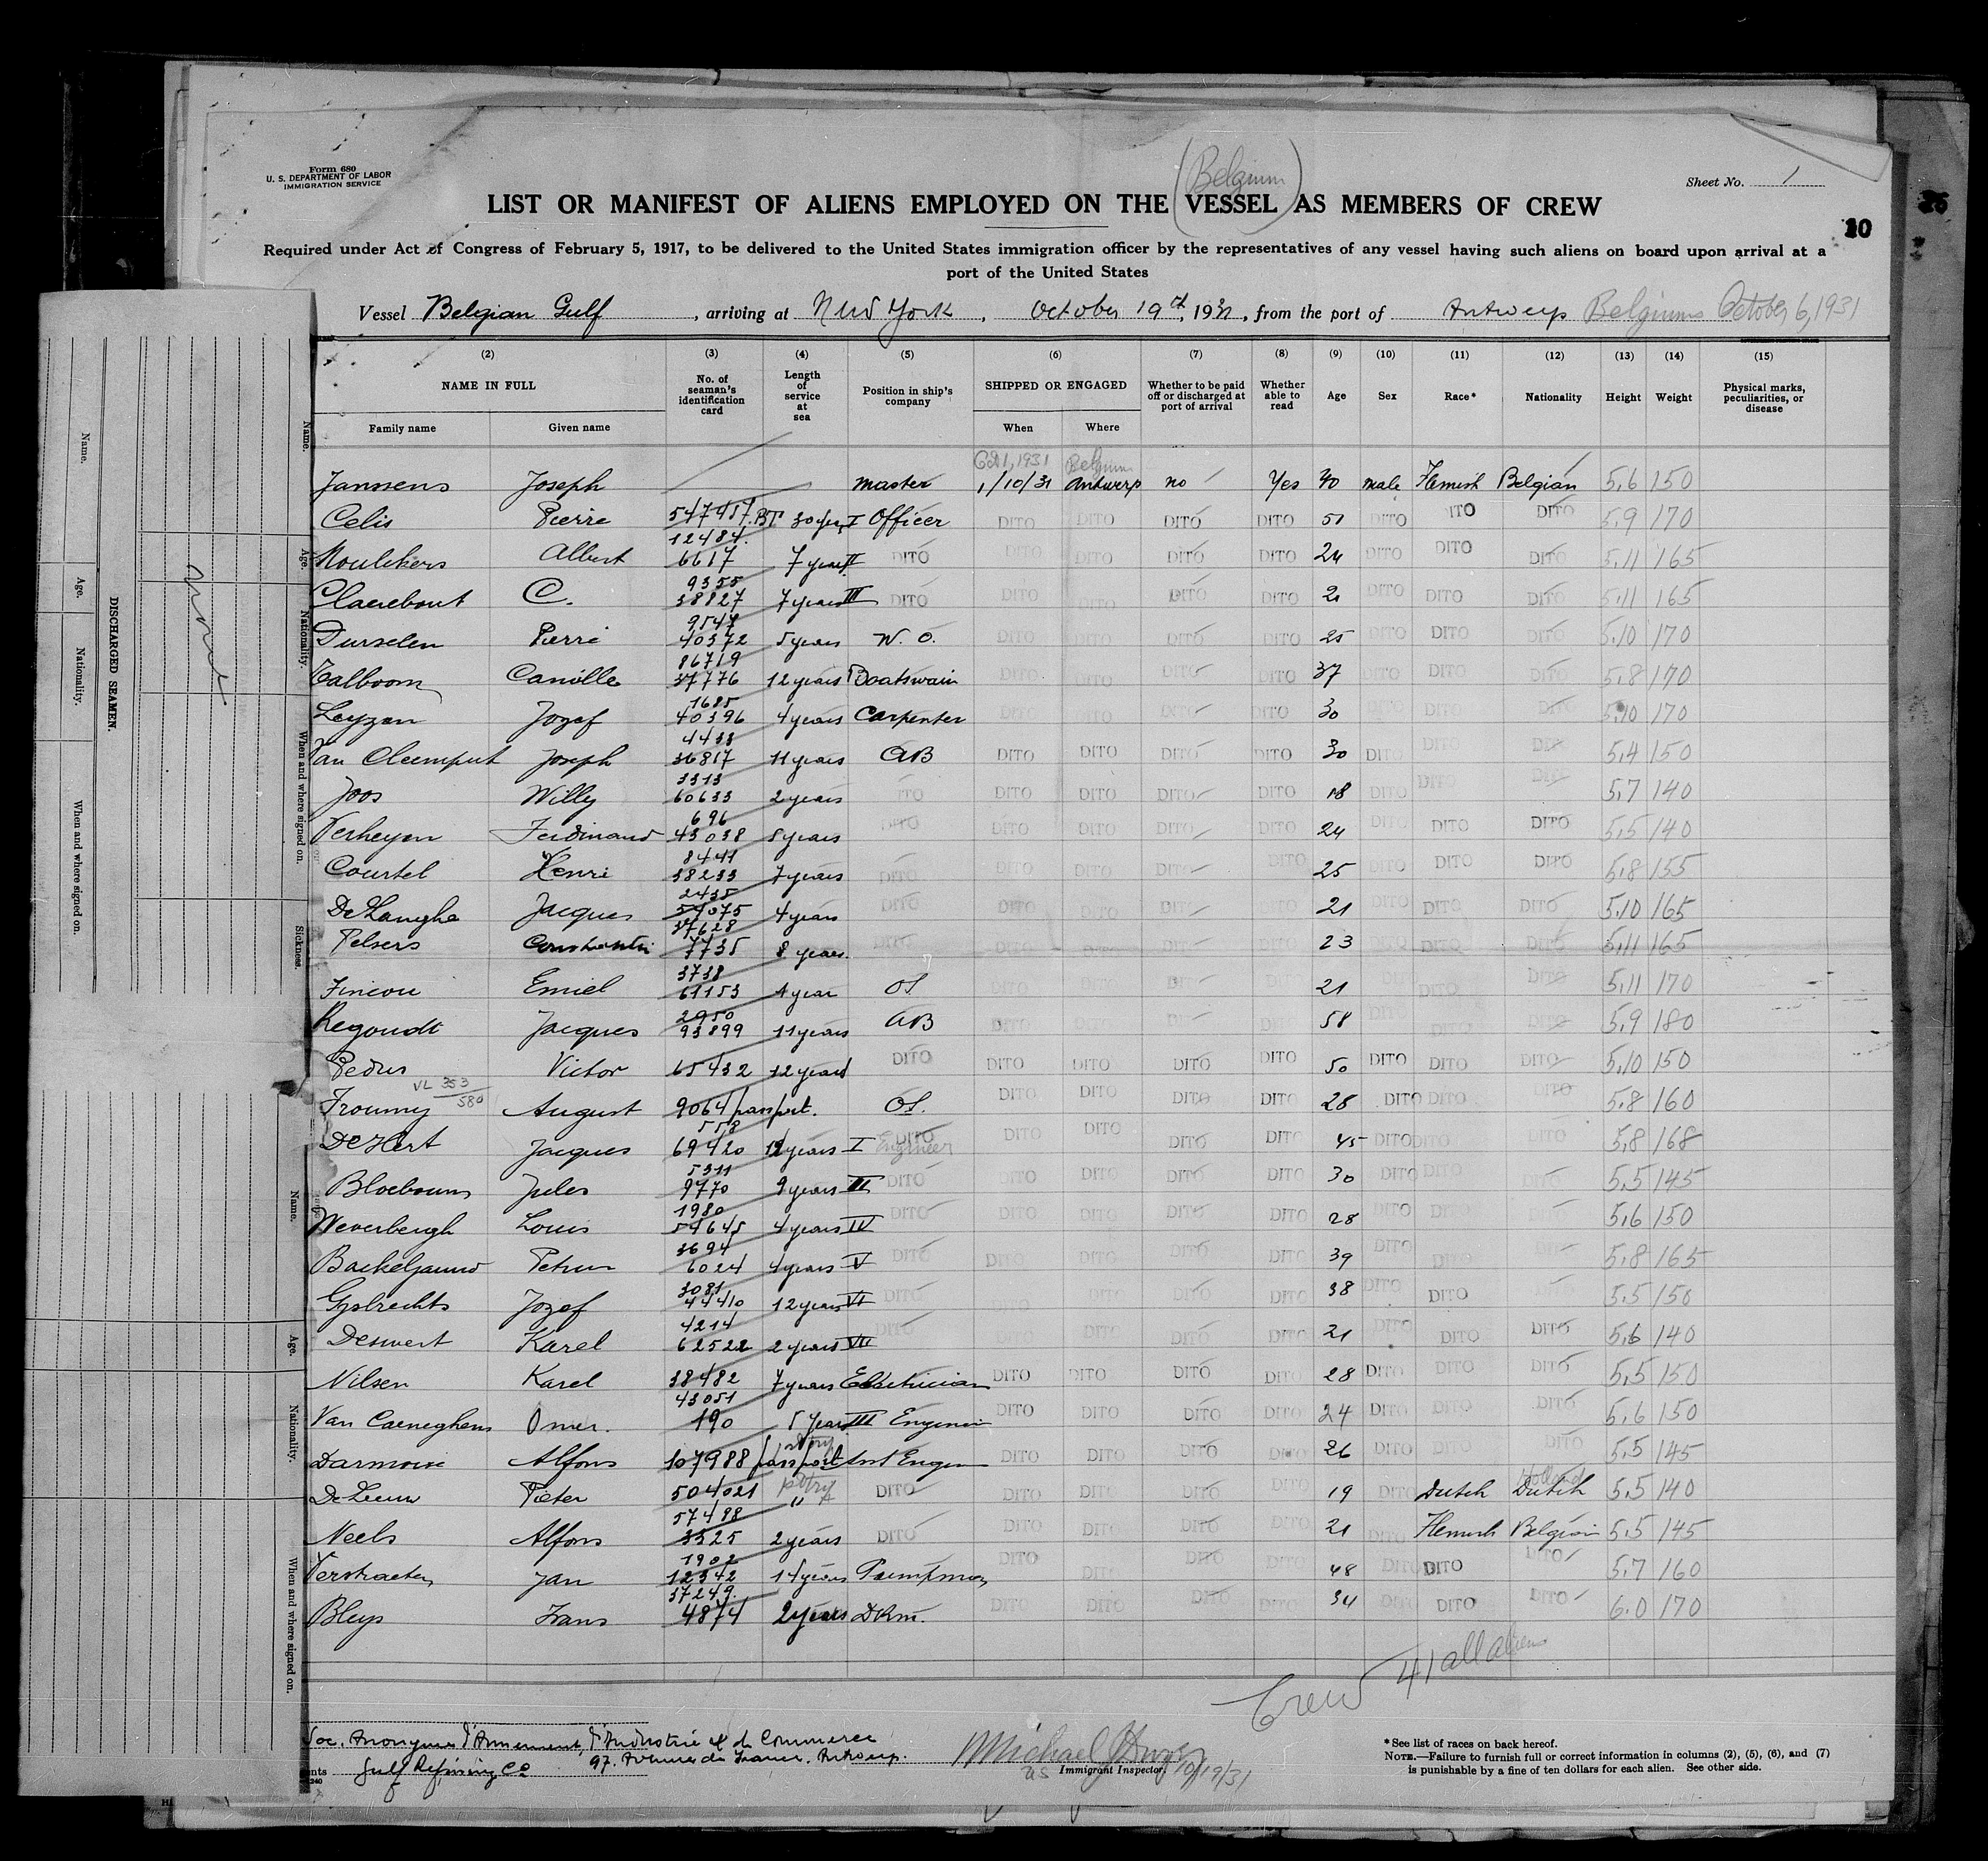 Form 680
U. S. DEPARTMENT OF LABOR
IMMIGRATION SERVICE
(Belgium)
Sheet No. 1
LIST OR MANIFEST OF ALIENS EMPLOYED ON THE VESSEL AS MEMBERS OF CREW
10
Required under Act of Congress of February 5, 1917, to be delivered to the United States immigration officer by the representatives of any vessel having such aliens on board upon arrival at a
port of the United States
Vessel Belgian Gulf, arriving at New York, October 19th, 1931, from the port of Antwerp Belgium October 6, 1931
(2) (3) (4) (5) (6) (7) (8) (9) (10) (11) (12) (13) (14) (15)
NAME IN FULL No. of seaman's identification card Length of service at sea Position in ship's company SHIPPED OR ENGAGED Whether to be paid off or discharged at port of arrival Whether able to read Age Sex Race* Nationality Height Weight Physical marks, peculiarities, or disease
Family name Given name When Where
Oct 1, 1931 Belgium
Janssens Joseph Master 1/10/31 Antwerp no Yes 40 male Flemish Belgian 5,6 150
Celis Pierre 30 years I Officer DITO DITO DITO DITO 51 DITO DITO DITO 5,9 170
12484
Albert 6617 7 years II DITO DITO DITO DITO DITO 24 DITO DITO DITO 5,11 165
9355
Claerebout C. 38827 7 years III DITO DITO DITO DITO DITO 21 DITO DITO DITO 5,11 165
9547
Durselen Pierre 40372 5 years W. O. DITO DITO DITO DITO 25 DITO DITO DITO 5,10 170
86719
Talboom Camille 37776 12 years Boatswain DITO DITO DITO DITO 37 DITO DITO DITO 5,8 170
1685
Leyzen Jozef 40396 4 years Carpenter DITO DITO DITO 30 DITO 5,10 170
4433
Van Cleemput Joseph 36817 11 years AB DITO DITO DITO DITO 30 DITO DITO DITO 5,4 150
3313
Joos Willy 60633 2 years DITO DITO DITO DITO DITO 18 DITO DITO DITO 5,7 140
696
Verheyen Ferdinand 43038 5 years DITO DITO DITO DITO DITO 24 DITO DITO DITO 5,5 140
8441
Courtel Henri 38233 7 years DITO DITO DITO DITO DITO 25 DITO DITO DITO 5,8 155
2435
De Langhe Jacques 59075 4 years DITO DITO DITO DITO DITO 21 DITO DITO DITO 5,10 165
37628
Pelsers Constantin 7735 8 years DITO DITO DITO DITO DITO 23 DITO DITO DITO 5,11 165
3738
Emiel 61153 1 year OS DITO DITO 21 DITO DITO 5,11 170
2950
Regoudt Jacques 93899 11 years AB DITO DITO DITO 58 DITO 5,9 180
Victor 65432 12 years DITO DITO DITO DITO DITO 50 DITO DITO DITO 5,10 150
VL 353/580
August 9064 passport. OS. DITO DITO DITO DITO 28 DITO DITO DITO 5,8 160
558
De Hert Jacques 69420 12 years I Engineer DITO DITO DITO DITO DITO 45 DITO DITO 5,8 168
5311
Jules 9770 9 years II DITO DITO DITO DITO DITO 30 DITO DITO DITO 5,5 145
1980
Weverbergh Louis 59645 4 years IV DITO DITO DITO DITO DITO 28 DITO DITO DITO 5,6 150
3694
Petrus 6024 4 years V DITO DITO DITO DITO DITO 39 DITO DITO 5,8 165
3081
Gysbrechts Jozef 44410 12 years VI DITO DITO DITO DITO 38 DITO DITO 5,5 150
4214
Deswert Karel 62522 2 years VII DITO DITO DITO DITO 21 DITO DITO DITO 5,6 140
Nilsen Karel 38482 7 years Electrician DITO DITO DITO DITO 28 DITO DITO DITO 5,5 150
43051
Van Caeneghem Omer. 190 5 years III Engineer DITO DITO DITO DITO 24 DITO DITO DITO 5,6 150
Alfons 107988 passport Engin DITO DITO DITO DITO 26 DITO DITO DITO 5,5 145
Holland
De Leeuw Pieter 504021 " DITO DITO DITO DITO DITO 19 DITO Dutch Dutch 5,5 140
57488
Neels Alfons 3325 2 years DITO DITO DITO DITO DITO 21 DITO Flemish Belgian 5,5 145
1902
Verstraeten Jan 12342 14 years Pumpman DITO DITO DITO DITO 48 DITO DITO DITO 5,7 160
37249
Bleys Frans 4874 2 years DKm. DITO DITO DITO DITO 34 DITO DITO DITO 6.0 170
Crew 41 all aliens
Soc. Anonyme d'Armement, d'Industrie & de Commerce
97. Avenue de France. Antwerp.
Gulf Refining Co
Michael
US Immigrant Inspector 10/19/31
*See list of races on back hereof.
NOTE.—Failure to furnish full or correct information in columns (2), (5), (6), and (7)
is punishable by a fine of ten dollars for each alien. See other side.
DISCHARGED SEAMEN.
Name.
Age.
Nationality.
When and where signed on.
none
Name.
Age.
Nationality.
When and where signed on.
Sickness.
Name.
Age.
Nationality.
When and where signed on.